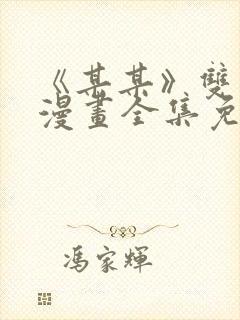 《某某》雙
漫畫全集免
馮家輝